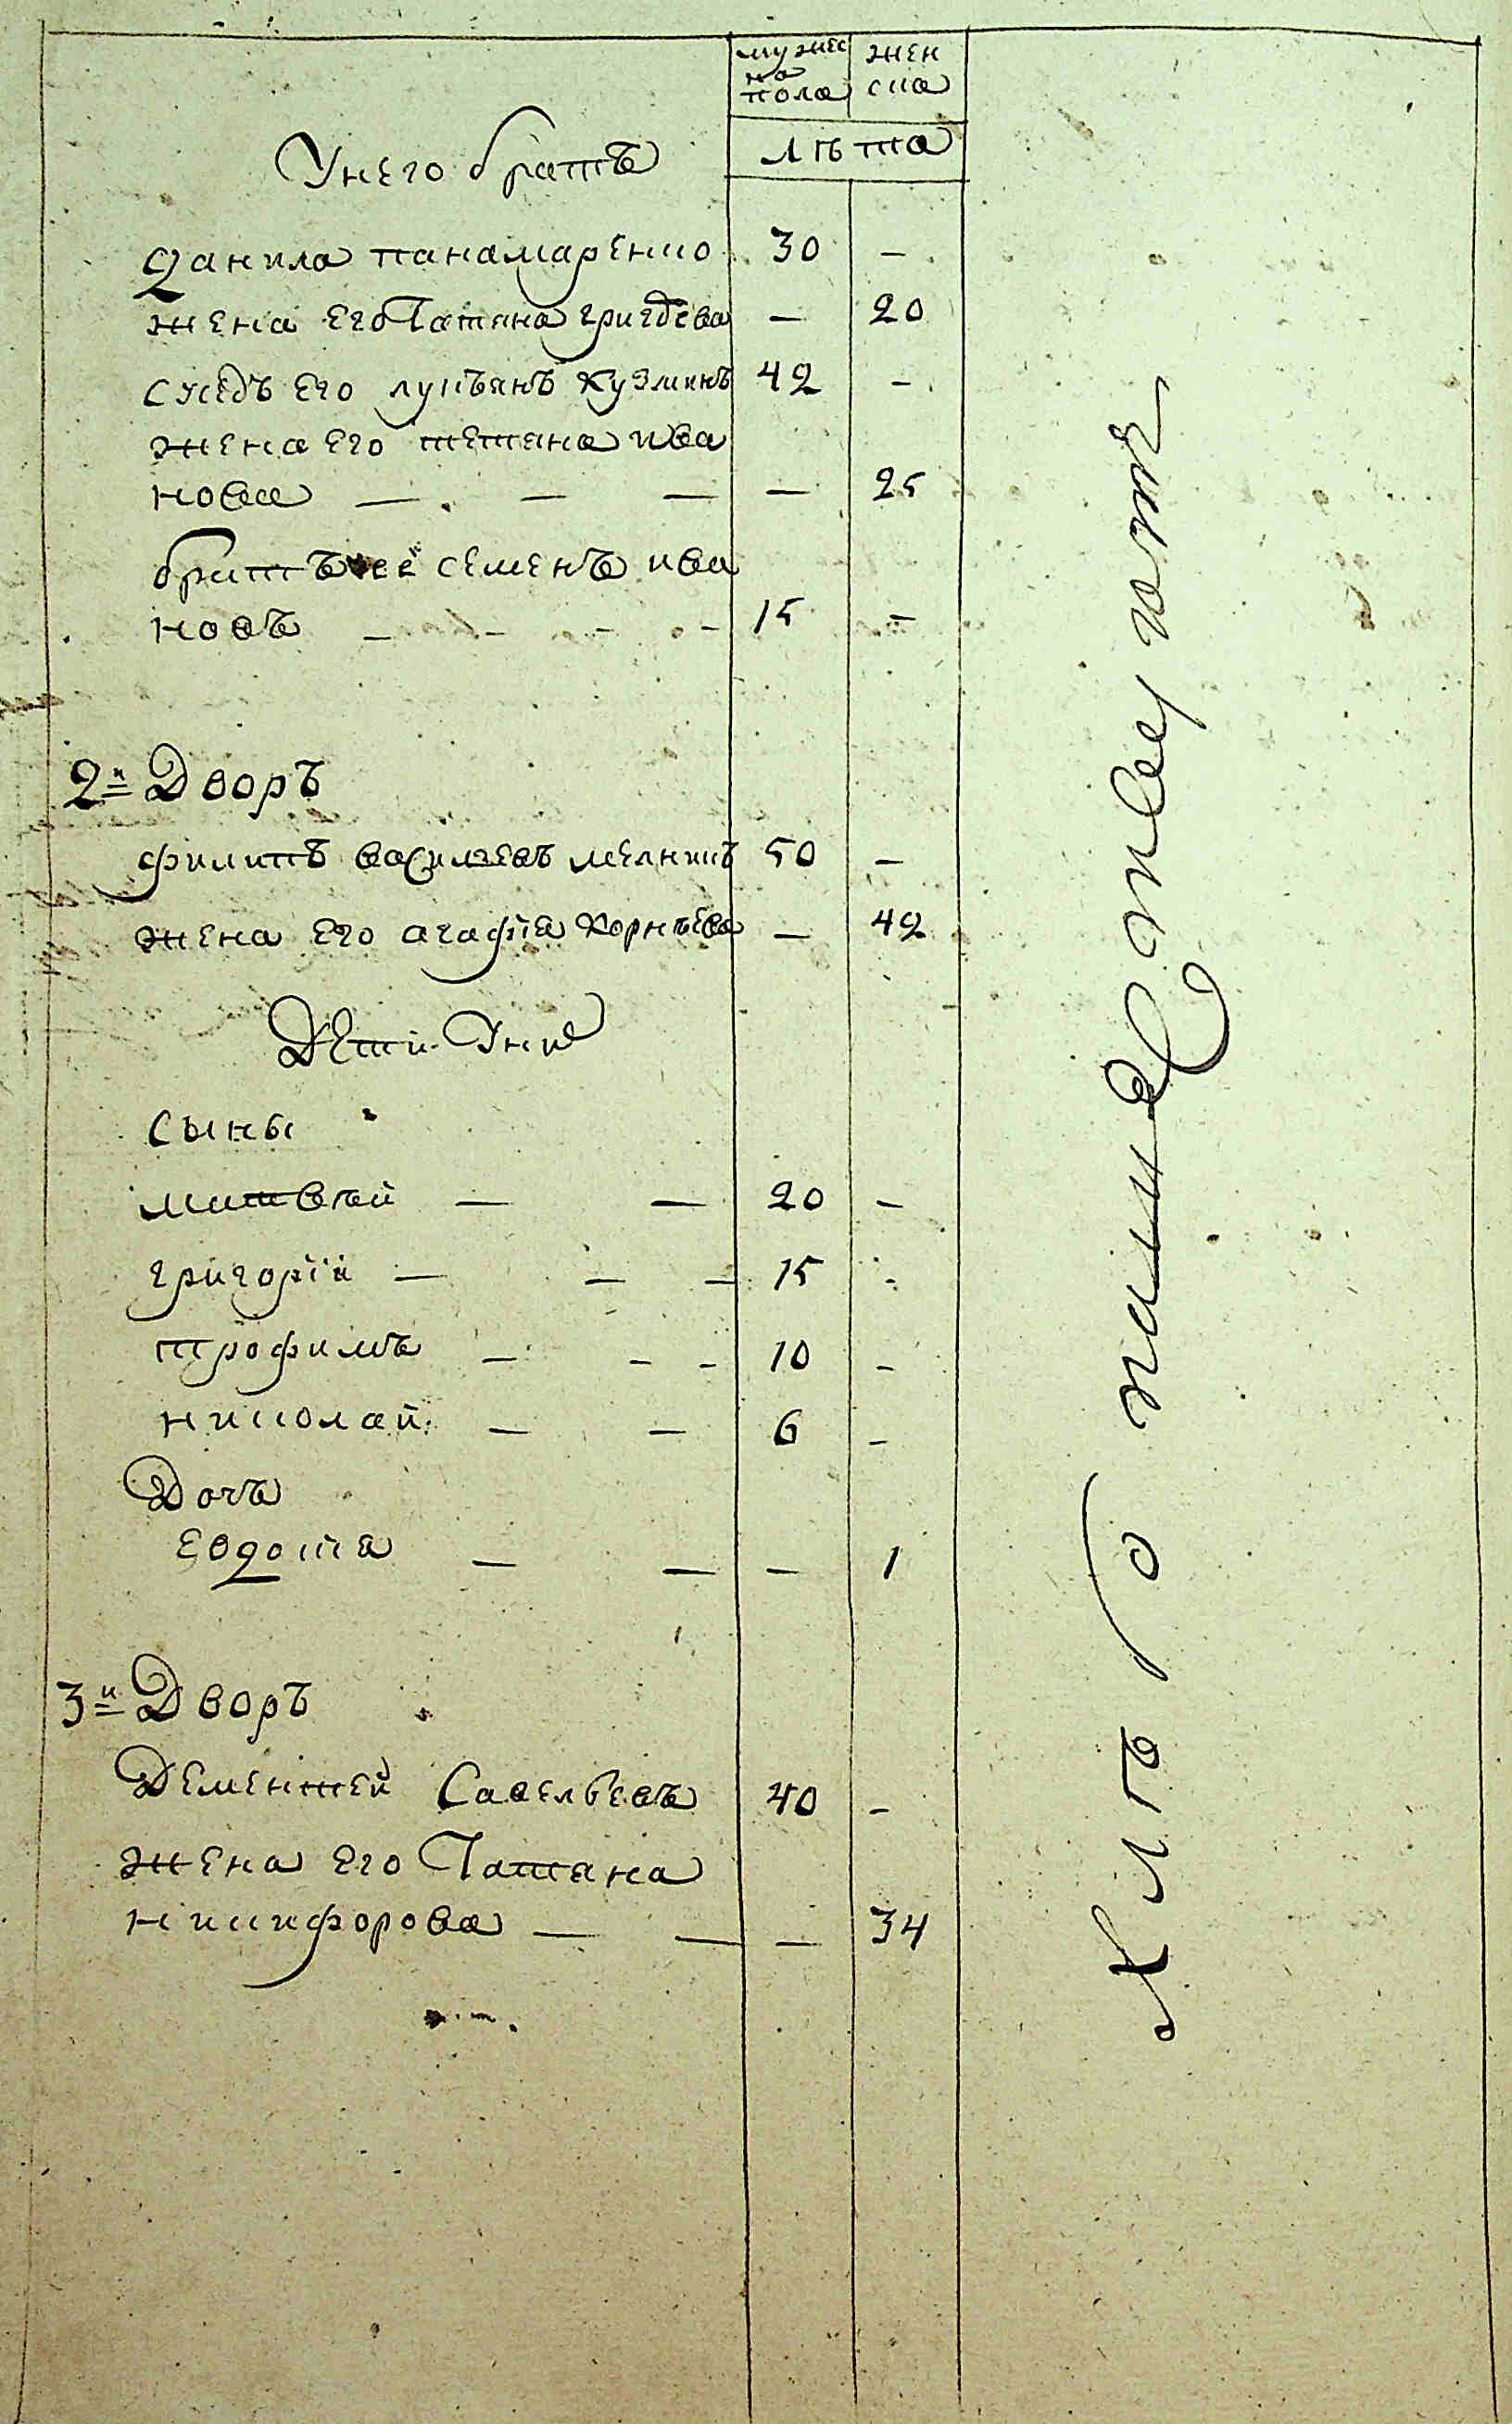 мужес жен
ка ска
пола
лѣта
Унего братъ
Данила панамаренко 30 —
жена его Татяна григорева — 20
суседъ его лукъянъ Кузминъ 42 —
жена его тетяна ива
нова — — — — 25
братъ ее семенъ ива
новъ — — — — 15 —
2й Дворъ
филипъ васильевъ мелникъ 50 —
жена его агафiя Корнѣева — 42
Дети Унихъ
сыны
матвѣй — — 20 —
григорiй — — — 15 —
трофимъ — — — 10 —
николай — — 6 —
Дочь
евдокiя — — — 1
3й Дворъ
Дементей Савельевъ 40 —
жена его Татяна
никифорова — — — 34
Хлѣбо пашествуютъ